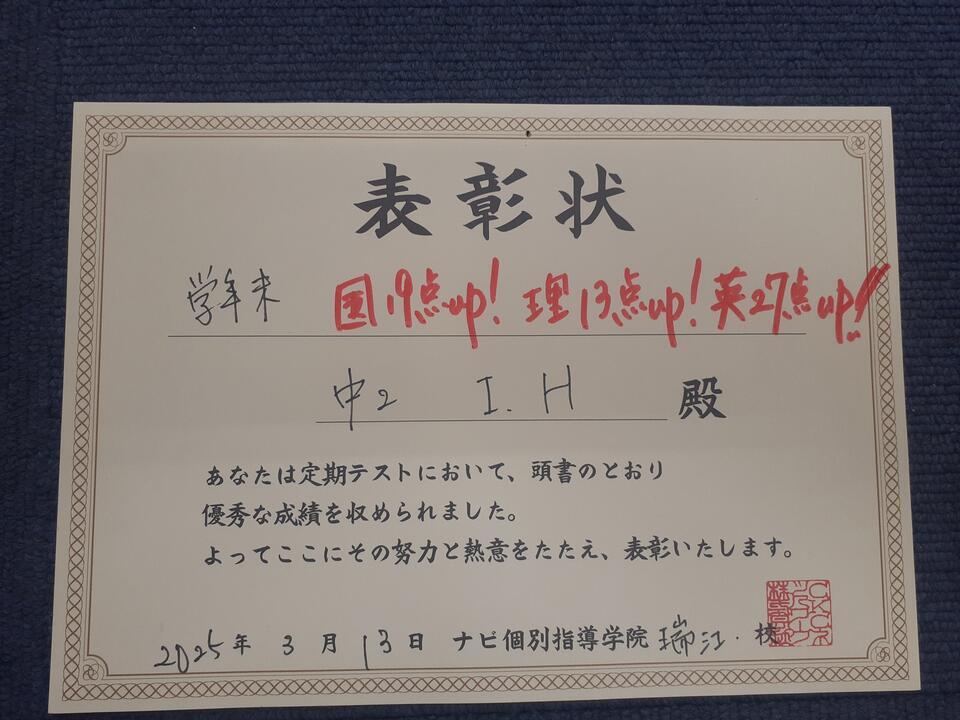 表彰状
学年末 国19点up! 理13点up! 英27点up!!
中2 I.H 殿
あなたは定期テストにおいて、頭書のとおり
優秀な成績を収められました。
よってここにその努力と熱意をたたえ、表彰いたします。
2025年 3月 13日 ナビ個別指導学院 瑞江.校